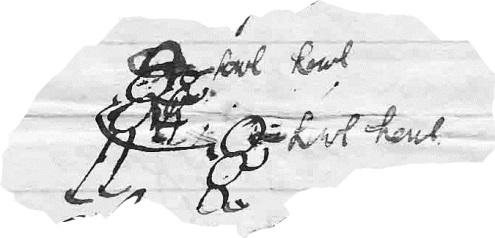 howl howl
howl howl